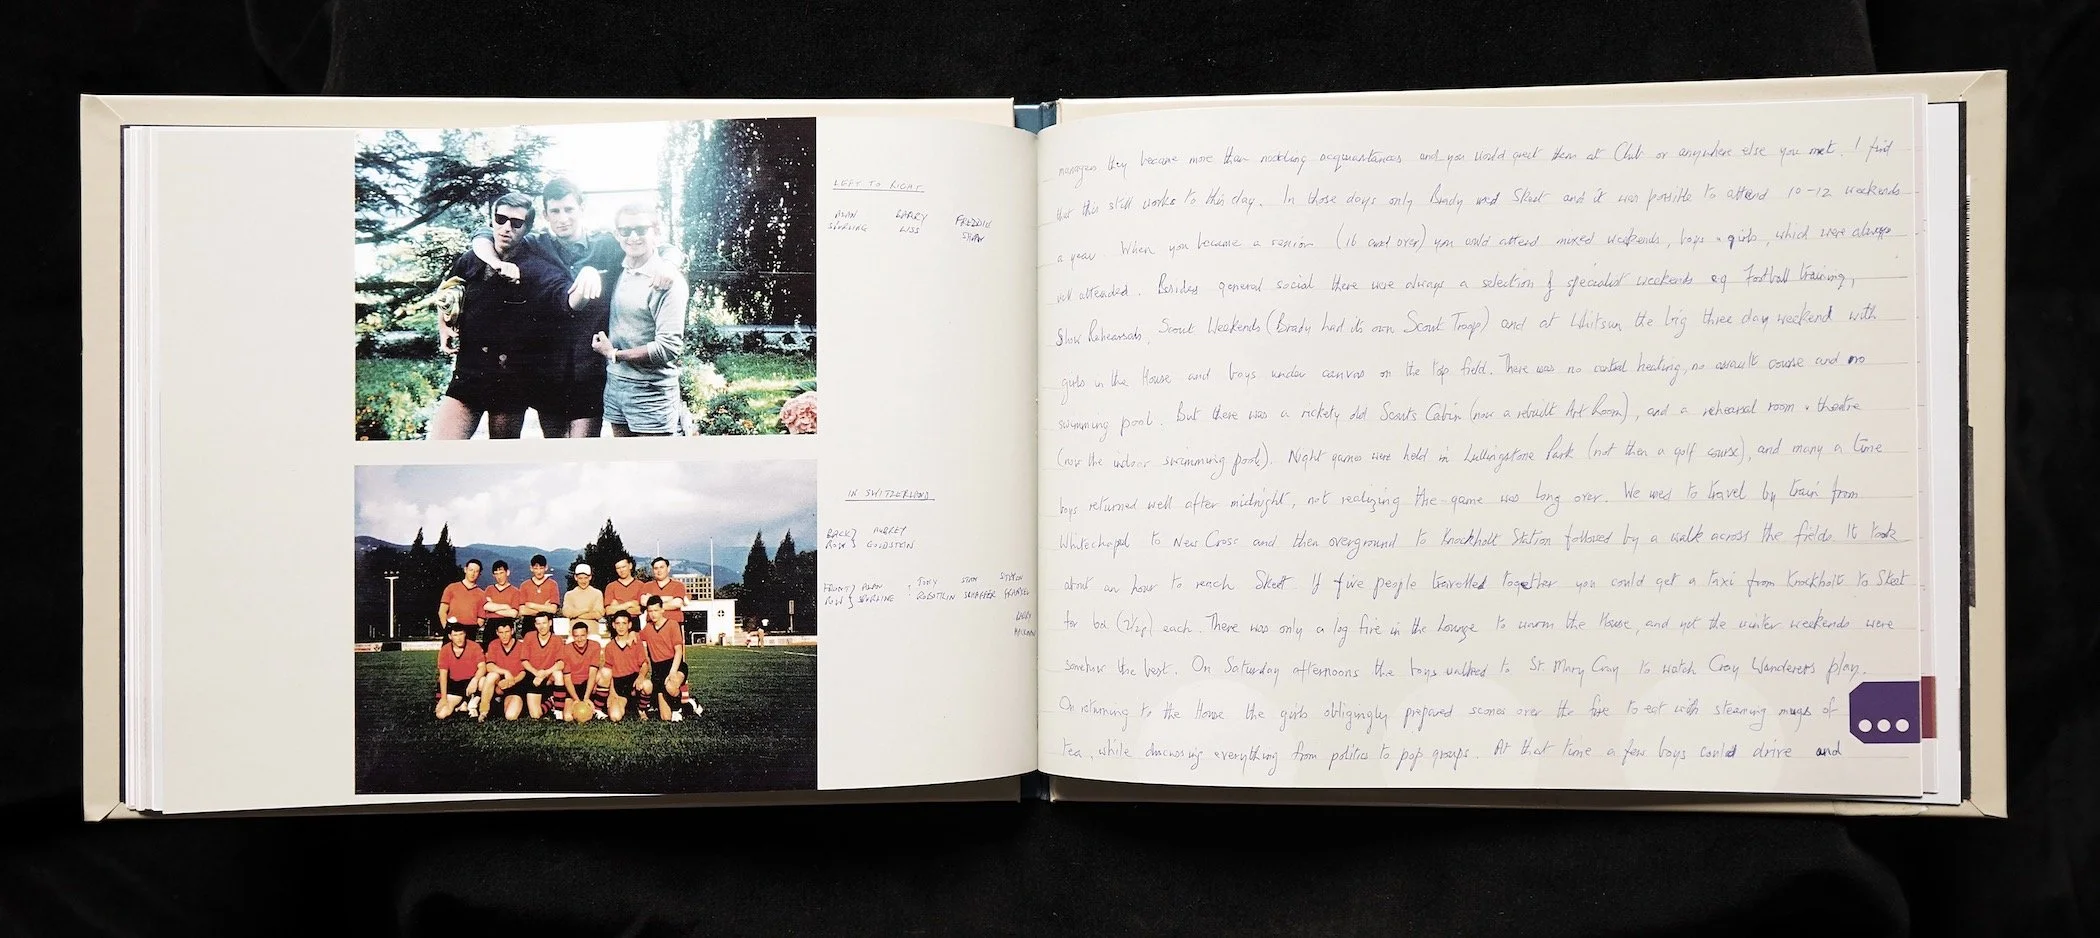 LEFT TO RIGHT
ALAN BARRY FREDDIE
SPURLING LISS SHAW
IN SWITZERLAND
BACK} AUBREY
ROW} GOLDSTEIN
FRONT} ALAN TONY STAN
ROW} SPURLING SHAFFER
managers they became more than nodding acquaintances and you would greet them at Club or anywhere else you met. I find
that this still works to this day. In those days only Brady used Skeet and it was possible to attend 10-12 weekends
a year. When you became a senior (16 and over) you could attend mixed weekends, boys + girls, which were always
well attended. Besides general social there were always a selection of specialist weekends eg Football training,
Show Rehearsals, Scout Weekends (Brady had its own Scout Troop) and at Whitsun the big three day weekend with
girls in the House and boys under canvas on the top field. There was no central heating, no assault course and no
swimming pool. But there was a rickety old Scouts Cabin (now a rebuilt Art Room), and a rehearsal room + theatre
(now the indoor swimming pool). Night games were held in Lullingstone Park (not then a golf course), and many a time
boys returned well after midnight, not realizing the game was long over. We used to travel by train from
Whitechapel to New Cross and then overground to Knockholt Station followed by a walk across the fields. It took
about an hour to reach Skeet. If five people travelled together you could get a taxi from Knockholt to Skeet
for 6d (2½p) each. There was only a log fire in the Lounge to warm the House, and yet the winter weekends were
somehow the best. On Saturday afternoons the boys walked to St. Mary Cray to watch Cray Wanderers play.
On returning to the House the girls obligingly prepared scones over the fire to eat with steaming mugs of
tea, while discussing everything from politics to pop groups. At that time a few boys could drive and